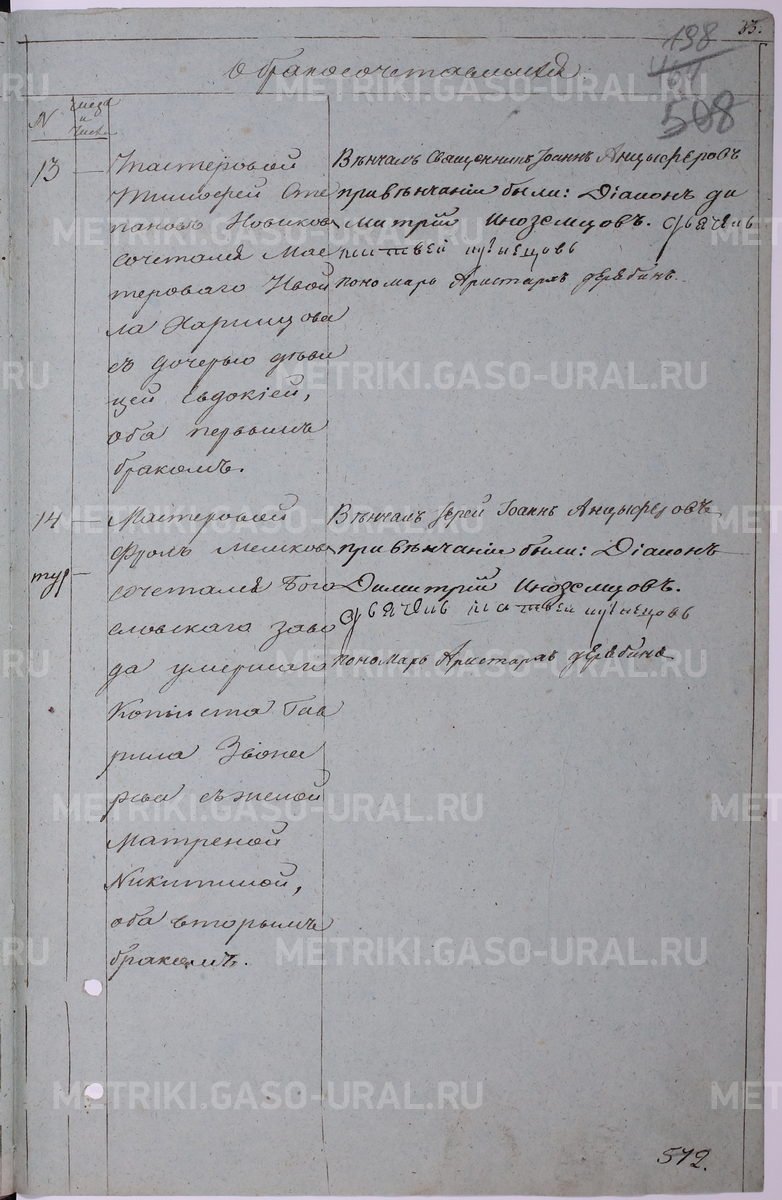 53.
198
508
О бракосочетавшихся
№
Месяц
и
Число
13
Мастеровой
Тимофей Сте
пановъ Новиков
сочетался Мас
тероваго
ла Харинцова
съ дочерью дѣви
цей Евдокіей,
оба первымъ
бракомъ.
Вѣнчалъ Священникъ Іоаннъ Анцыферовъ
при вѣнчаніи были: Діаконъ Ди
митрій Иноземцовъ. Дьячекъ
матвей
пономарь Аристархъ дерябинъ.
14
тур
Мастеровой
Фролъ Мешков
сочетался Бого
словскаго заво
да умершаго
Копіиста Гав
рила
съ женой
Матреной
Никитиной,
оба вторымъ
бракомъ.
Вѣнчалъ Іерей Іоаннъ Анцыферовъ
при вѣнчаніи были: Діаконъ
Димитрій Иноземцовъ.
дьячекъ матвей
пономарь Аристархъ дерябинъ
512.
METRIKI.GASO-URAL.RU